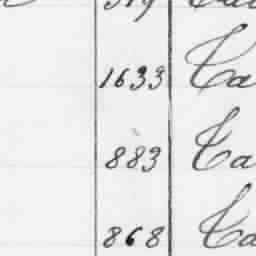 1633 Ta
883 Ta
868 Ta